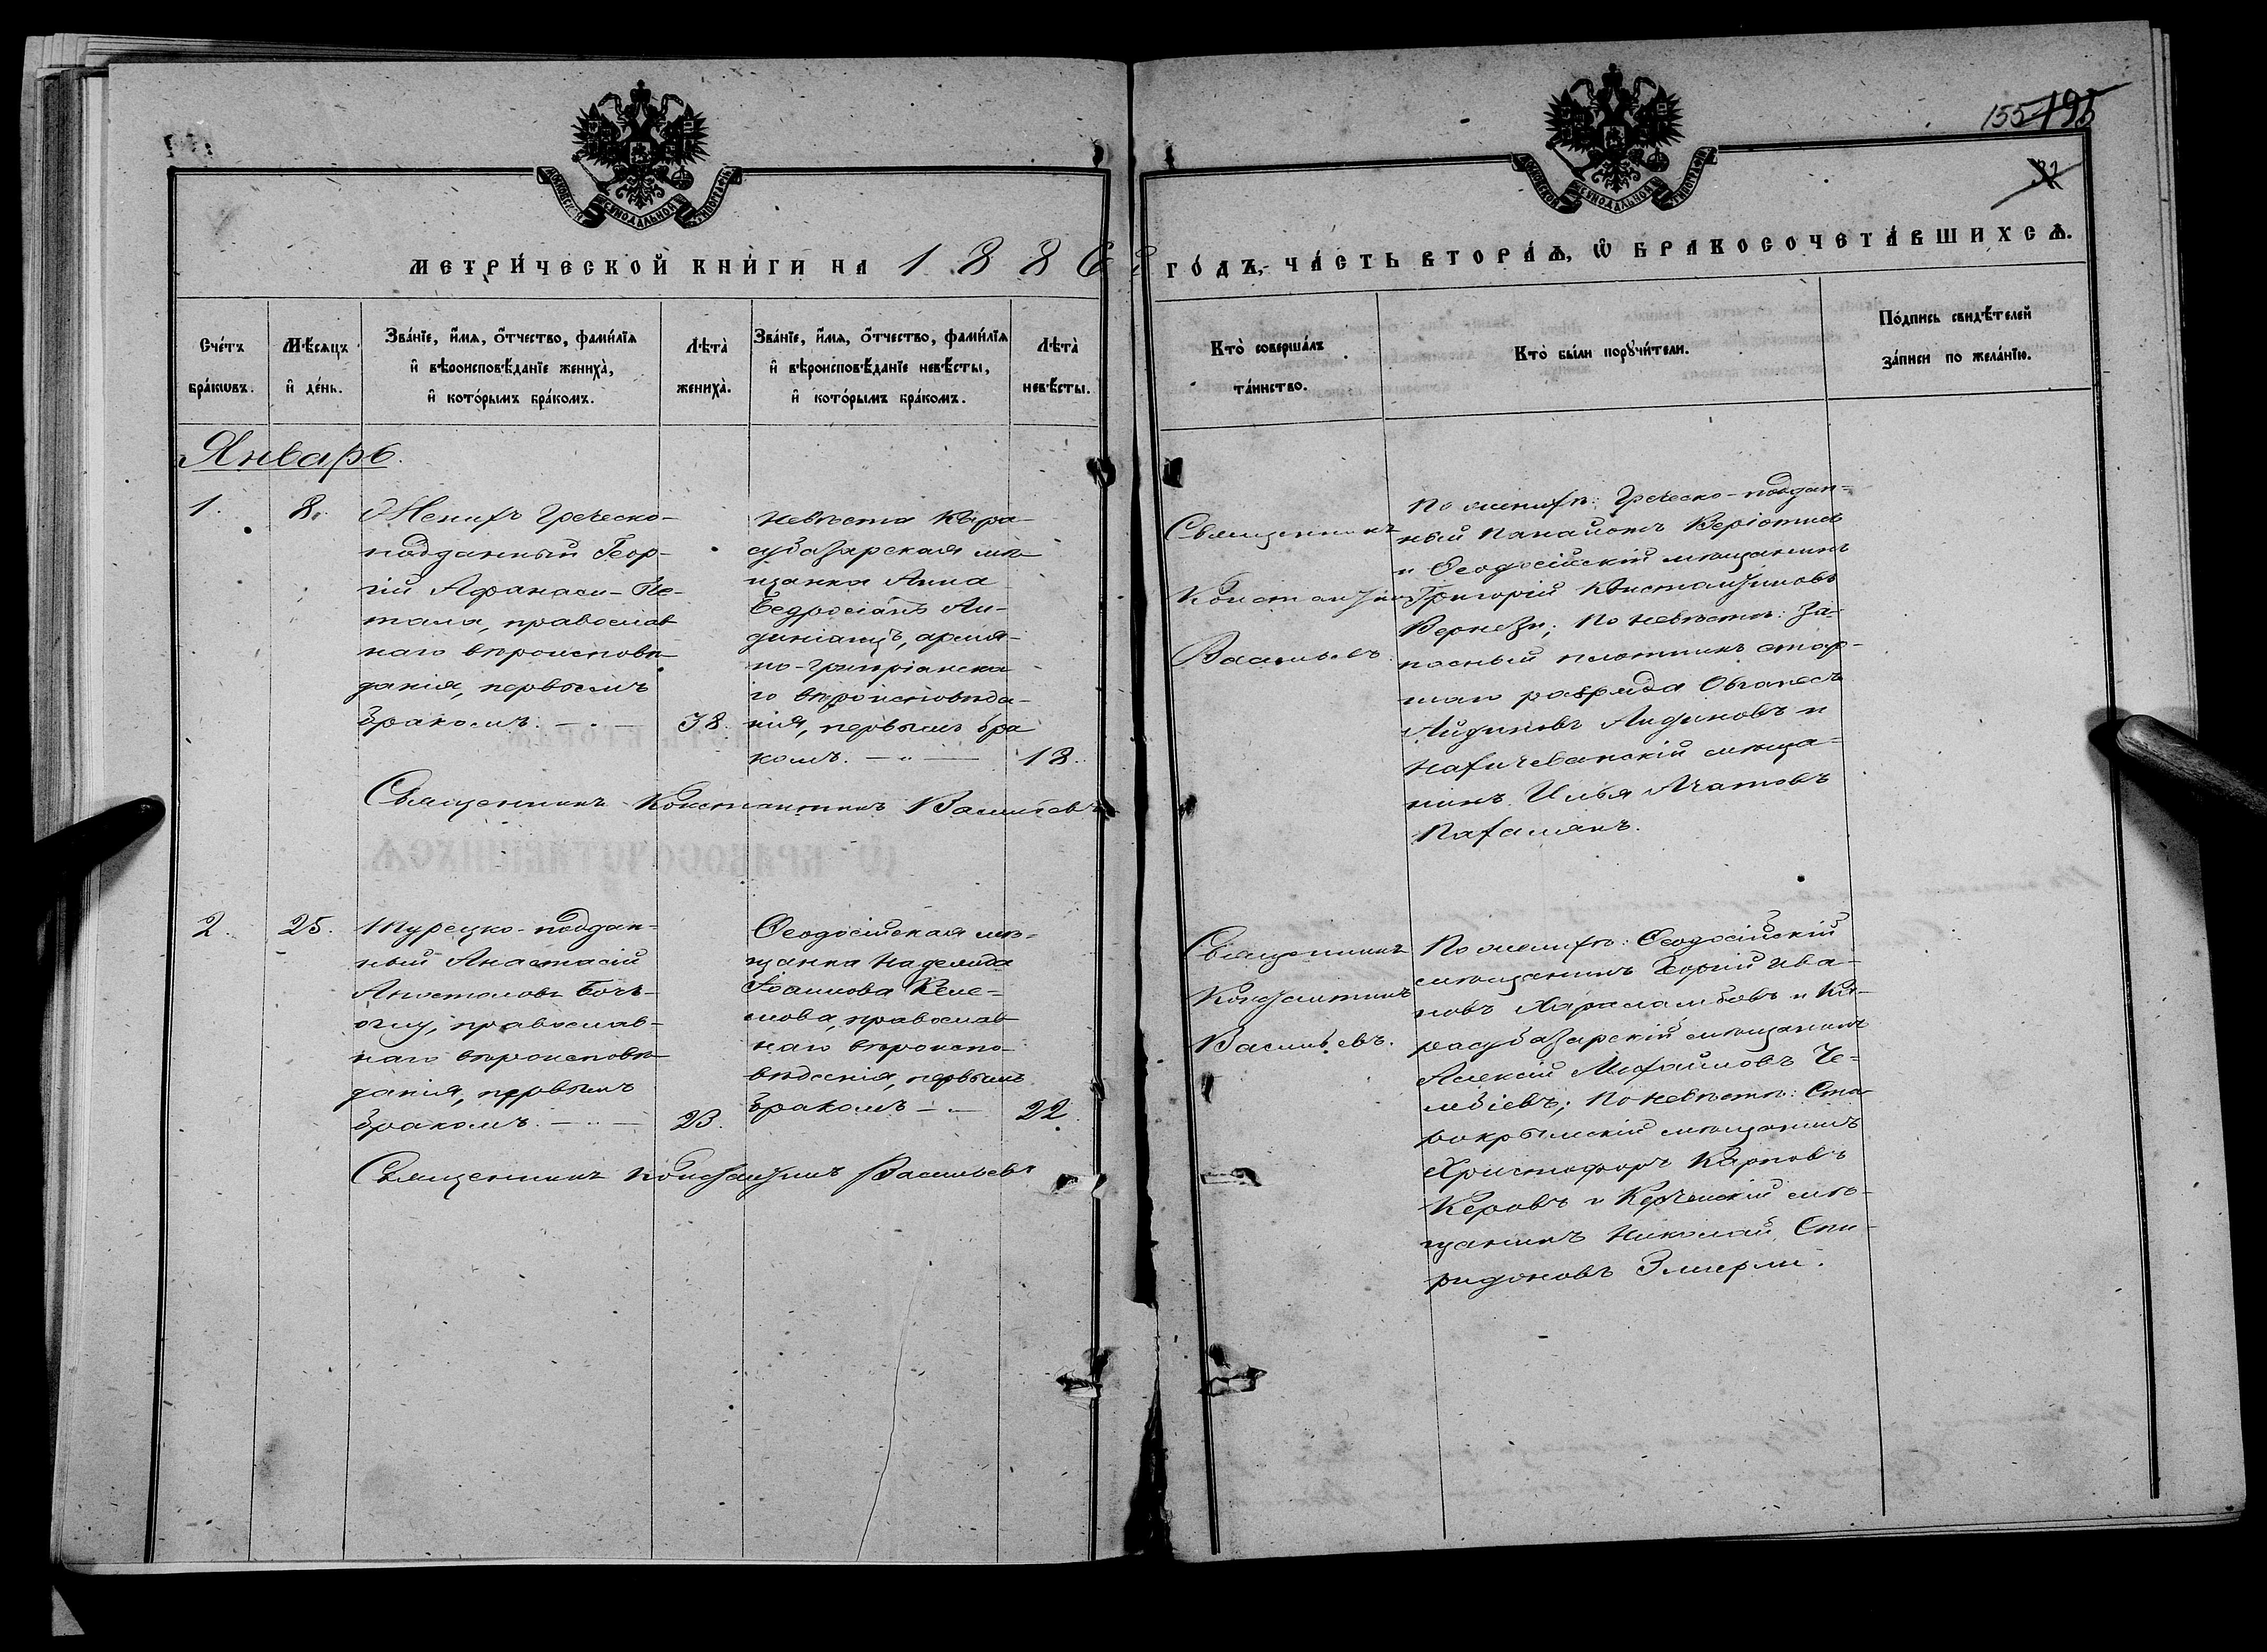 155 195
32
МОСКОВСКОЙ СѴНОДАЛЬНОЙ ТИПОГРАФІИ
МОСКОВСКОЙ СѴНОДАЛЬНОЙ ТИПОГРАФІИ
МЕТРИ́ЧЕСКОЙ КНИ́ГИ НА 1886
ГО́ДЪ, ЧА́СТЬ ВТОРА́Ѧ, Ѽ БРАКОСОЧЕТА́ВШИХСѦ.
Сче́тъ
бра́кѡвъ.
Мѣ́сяцъ
и҆ де́нь.
Зва́нїе, и҆́мѧ, ѻ҆́тчество, фами́лїѧ
и҆ вѣроисповѣ́данїе жениха̀,
и҆ кото́рымъ бра́комъ.
Лѣта̀
жениха̀.
Зва́нїе, и҆́мѧ, ѻ҆́тчество, фами́лїѧ
и҆ вѣроисповѣ́данїе невѣ́сты,
и҆ кото́рымъ бра́комъ.
Лѣта̀
невѣ́сты.
Кто̀ соверша́лъ
та́инство.
Кто̀ бы́ли порꙋчи́тели.
По́дпись свидѣ́телей
за́писи по жела́нїю.
Январь.
1.
8.
Женихъ Греческо-
подданный Геор-
гій Афанаси-Пе-
тала, православ
наго вѣроисповѣ
данія, первымъ
бракомъ.
38.
Невѣста Кара-
субазарская мѣ
щанка Анна
Бедросіанъ Ай-
диніанцъ, армя-
но-григріанска
го вѣроисповѣда-
нія, первымъ бра
комъ.
18.
Священникъ Константинъ Васильевъ
Священникъ
Константинъ
Васильевъ.
По женихѣ: Греческо-поддан-
ный Панайотъ Веріотисъ
и Ѳеодосійскій мѣщанинъ
Григорій Константиновъ
Вернези; По невѣстѣ: За-
пасный плотникъ стар-
шаго разряда Ованесъ
Айдиновъ Айдиновъ и
Нахичеванскій мѣща-
нинъ Илья Агатовъ
Пахалянъ.
2.
25.
Турецко-поддан-
ный Анастасій
Апостоловъ Богъ-
оглу, православ-
наго вѣроисповѣ
данія, первымъ
бракомъ.
23.
Ѳеодосійская мѣ-
щанка Надежда
Іоаннова Келе-
шова, православ
наго вѣроиспо-
вѣданія, первымъ
бракомъ
22.
Священникъ Константинъ Васильевъ
Священникъ
Константинъ
Васильевъ.
По женихѣ: Ѳеодосійскій
мѣщанинъ Георгій Ива-
новъ Харалампбовъ и Ка-
расубазарскій мѣщанинъ
Алексій Михайловъ Че-
лебіевъ; По невѣстѣ: Ста
рокрымскій мѣщанинъ
Христофоръ Карповъ
Керовъ и Керченскій мѣ-
щанинъ Николай Спи-
ридоновъ Эмирли.